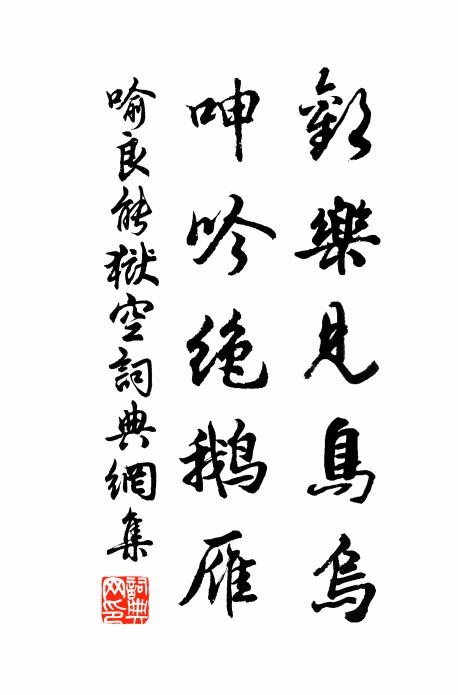 歡樂見鳥烏
呻吟絶鵝雁
喻良能獄空詞典網集